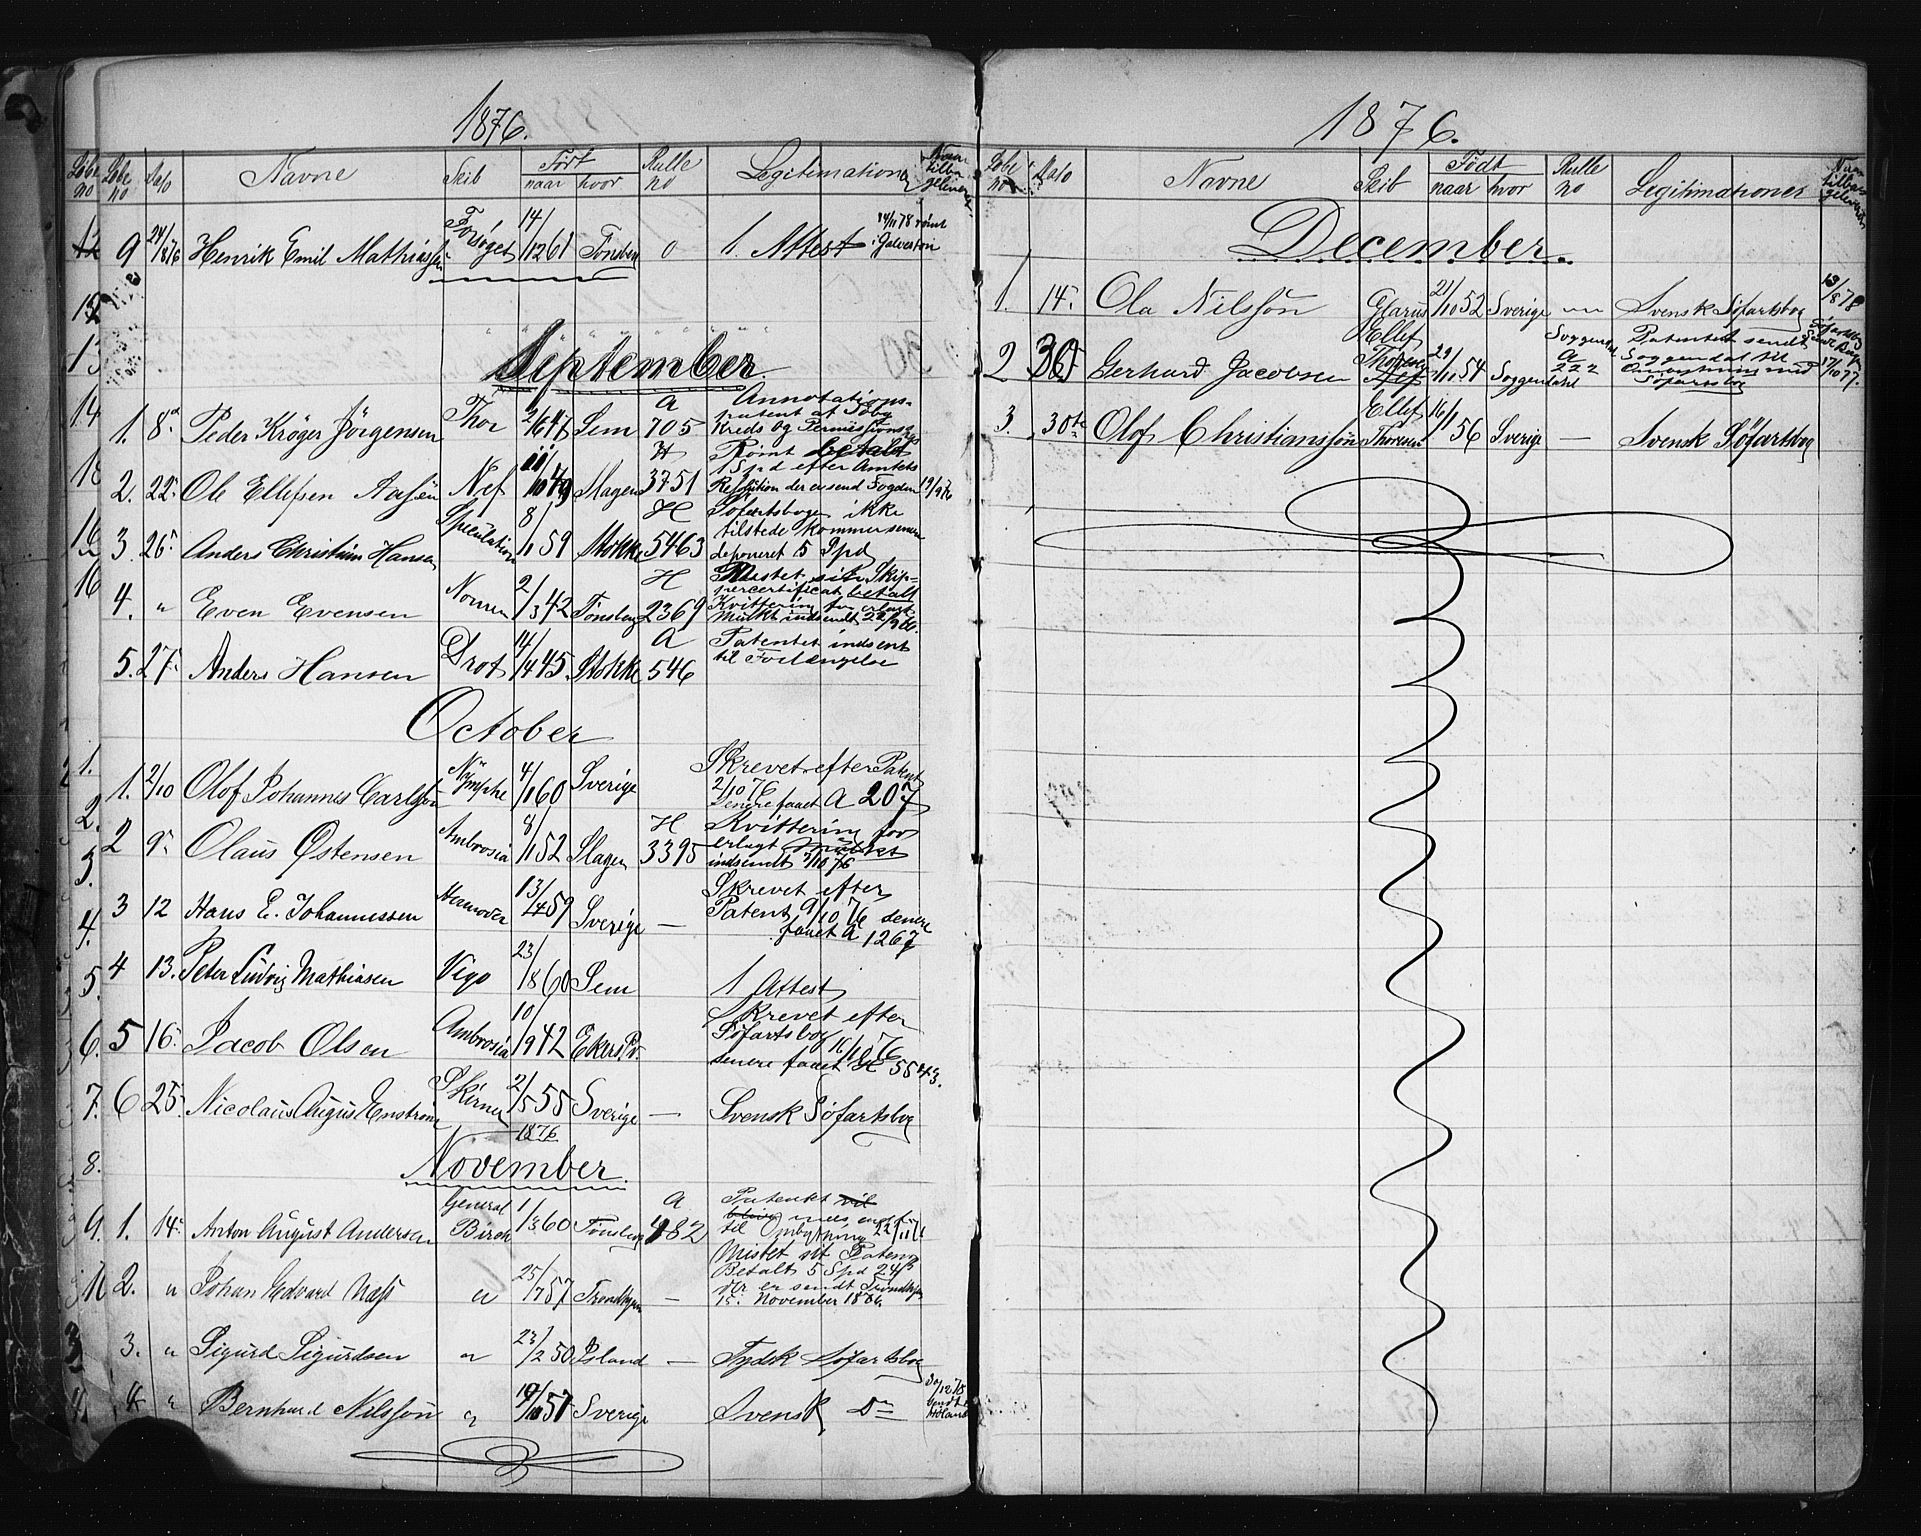 1876.
Løbe no Løbe no Dato Navne Skib Født naar hvor Rulle no Legitimationer Naar tilba gelivert
12 9 24/8 76 Henrik Emil Mathiassen Forsøget 14/12 61 Tønsberg 0 1 Attest 14/11 78 rømt i Galveston
13
September
14 1. 8de Peder Krøger Jörgensen Thor 2/6 47 Sem A 705 Annotations-
patent af Söby
Kreds og Permissions
2. 22 Ole Ellefsen Aasen Nef 10 49 Slagen H 3751 Rømt betalt
1 Spd efter Amtets
Resolution der er send Fogden 19/9 76
16 3. 26 Anders Christian Hansen Speculation 8/11 59 Stokke H 5463 Söfartsbogen ikke
tilstede kommer senere
deponeret 5 Spd
16 4. " Even Evensen Nornen 2/3 42 Tønsberg H 2369 Mistet sit Skip-
percertificat betalt
Kvittering for erlagt
Mulkt indsendt 22/9 76.
5. 27 Anders Hansen Drot 14/4 45. Stokke A 546 Patentet indsent
til Forlængelse
October
1. 1. 2/10 Olof Johannes Carlsson Nymphe 4/1 60 Sverige Skrevet efter Patent
2/10 76
Senere faaet A 207
2. 2 9 Olaus Østensen Ambrosia 8/11 52 Slagen H 3395 Kvittering for
erlagt Mulkt
indsendt 9/10 76
3. 3 12 Hans E. Johannessen Hannover 13/4 59 Sverige — Skrevet efter
Patent 9/10 76 senere
faaet A 1267
4. 4 13. Peter Ludvig Mathiasen Vigo 23/8 60 Sem 1 Attest
5. 5 16 Jacob Olsen Ambrosia 10/9 42 Ekers Pr. Skrevet efter
Söfartsbog 16/10 76
senere faaet H 5543.
6.
7. 6 25. Nicolaus August Enström Skirner 2/5 55 Sverige — Svensk Söfartsbog
1876
8. November.
9. 1. 14 Anton August Andersen General Birch 1/3 60 Tønsberg A 182 Patentet vil
blive indsendt
til Ombytning 22/11 76
2. " Johan Edvard Næss " 25/7 57 Trondhjem — Mistet sit Patent
Betalt 5 Spd 24 ß
der er sendt Trondhjem
15 November 1876.
3. " Sigurd Sigurdsen " 23/2 50 Island — Tydsk Söfartsbog
4. " Bernhard Nilsson " 19/10 57 Sverige Svensk Do 20/12 78
1876.
Løbe no Dato Navne Skib Født naar hvor Rulle no Legitimationer Naar tilba gelivert
December.
1. 14 Ola Nilsson Glarus 21/10 52 Sverige — Svensk Söfartsbog 13/8 78
2 30 Gerhard Jacobsen Ellef Thoresen 29/10 54 Soggendahl Soggendal A 222 Patentet sendt
Soggendal til
Söfartsbog 17/10 77.
3. 30te Olof Christiansson Ellef Thoresen 16/1 56 Sverige — Svensk Söfartsbog